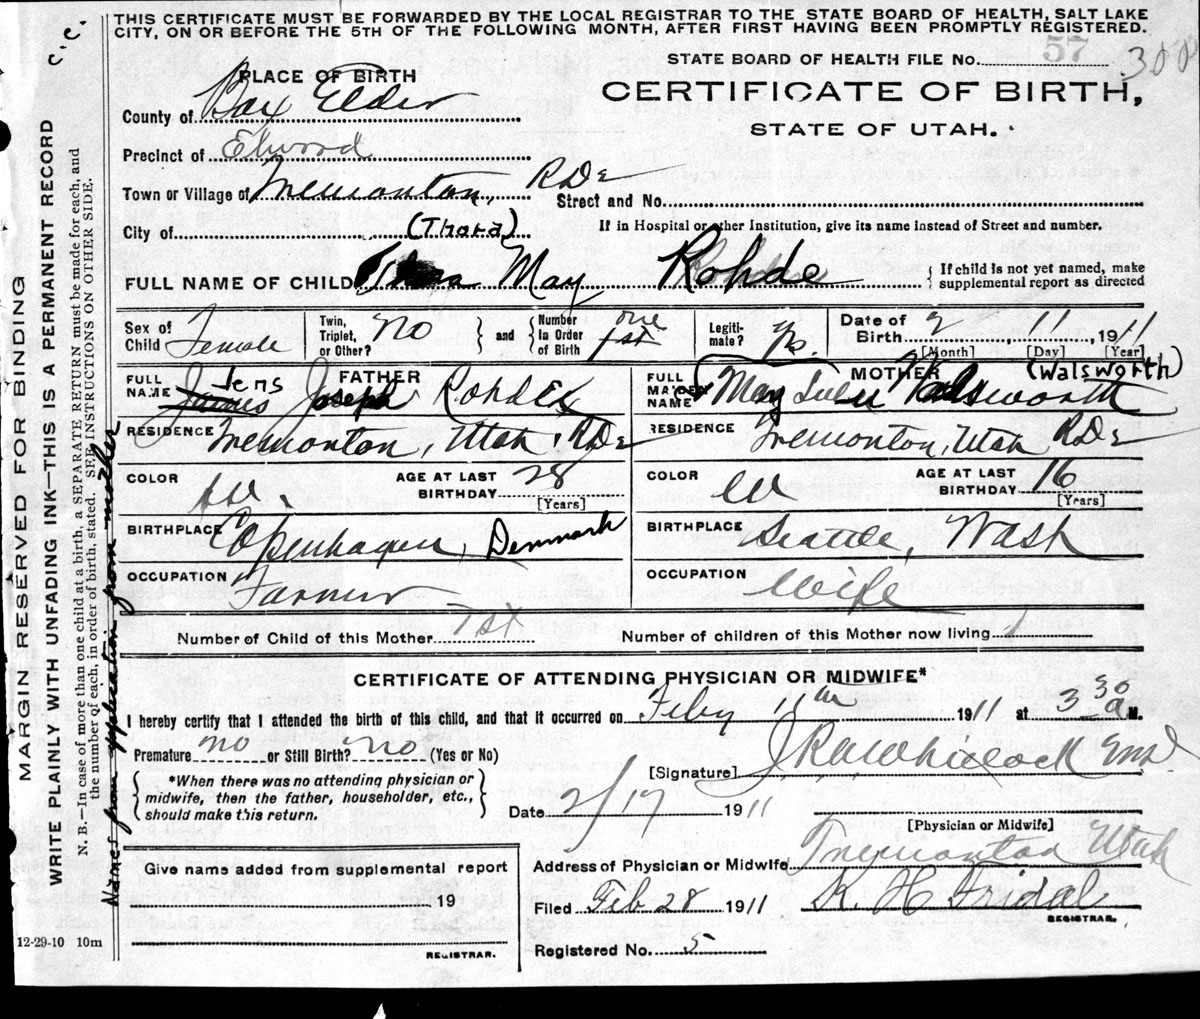 THIS CERTIFICATE MUST BE FORWARDED BY THE LOCAL REGISTRAR TO THE STATE BOARD OF HEALTH, SALT LAKE
CITY, ON OR BEFORE THE 5TH OF THE FOLLOWING MONTH, AFTER FIRST HAVING BEEN PROMPTLY REGISTERED.
C.C.
STATE BOARD OF HEALTH FILE No. 57 300
PLACE OF BIRTH
CERTIFICATE OF BIRTH,
County of Box Elder
STATE OF UTAH.
Precinct of Elwood
Town or Village of Tremonton, RD2 Street and No.
City of (Thora) If in Hospital or other Institution, give its name Instead of Street and number.
FULL NAME OF CHILD May Rohde { If child is not yet named, make supplemental report as directed
Sex of Child Female Twin, Triplet, or Other? No } and { Number In Order of Birth one 1st Legiti-mate? Yes. Date of Birth 2, 11, 1911
[Month] [Day] [Year]
FATHER
FULL NAME James Jens Joseph Rohde
RESIDENCE Tremonton, Utah, RD2
COLOR W. AGE AT LAST BIRTHDAY 28 [Years]
BIRTHPLACE Copenhagen, Denmark
OCCUPATION Farmer
MOTHER
FULL MAIDEN NAME May Walsworth (Walsworth)
RESIDENCE Tremonton, Utah RD2
COLOR W AGE AT LAST BIRTHDAY 16 [Years]
BIRTHPLACE Seattle, Wash
OCCUPATION Wife
Number of Child of this Mother 1st Number of children of this Mother now living 1
CERTIFICATE OF ATTENDING PHYSICIAN OR MIDWIFE*
I hereby certify that I attended the birth of this child, and that it occurred on Feby 11th 1911 at 3 30 a M.
Premature no or Still Birth? no (Yes or No)
{ *When there was no attending physician or midwife, then the father, householder, etc., should make this return. }
[Signature]
Date 2/17 1911
[Physician or Midwife]
Address of Physician or Midwife Tremonton Utah
Filed Feb 28 1911 K. H. Fridal
REGISTRAR.
Registered No. 5
Give name added from supplemental report
19
REGISTRAR.
12-29-10 10m
MARGIN RESERVED FOR BINDING
WRITE PLAINLY WITH UNFADING INK—THIS IS A PERMANENT RECORD
N. B.—In case of more than one child at a birth, a SEPARATE RETURN must be made for each, and
the number of each, in order of birth, stated. SEE INSTRUCTIONS ON OTHER SIDE.
Names from application from mother